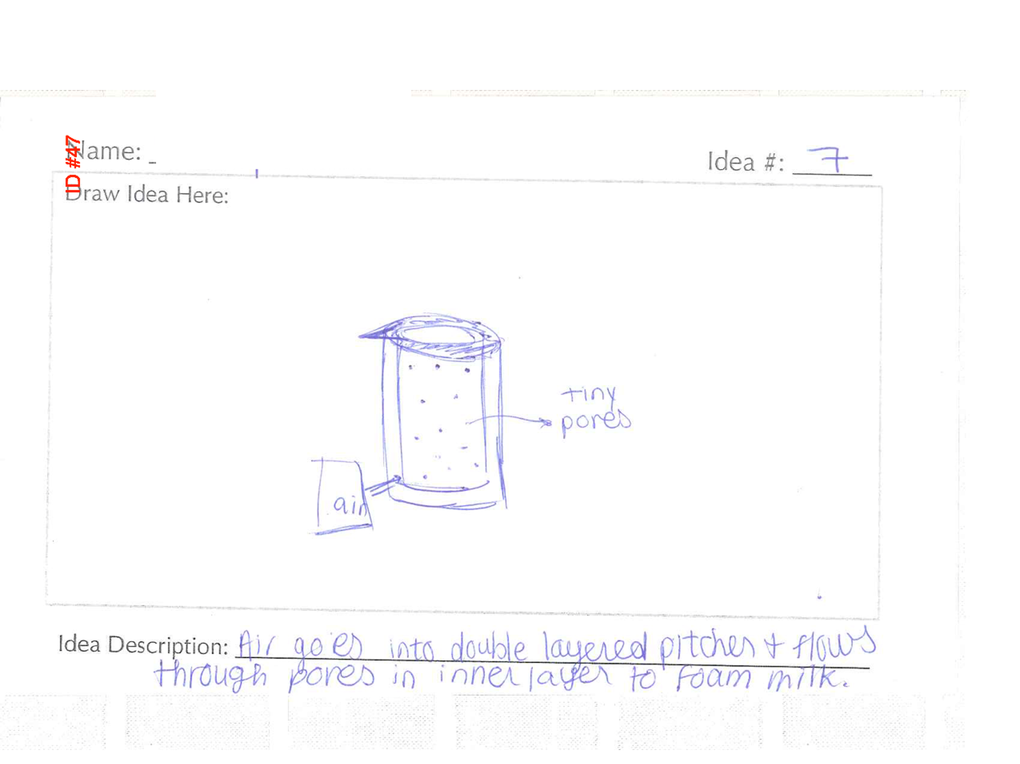 ID #47
Name: _
Idea #: 7
Draw Idea Here:
tiny
pores
air
Idea Description: Air goes into double layered pitcher & flows
through pores in inner layer to foam milk.